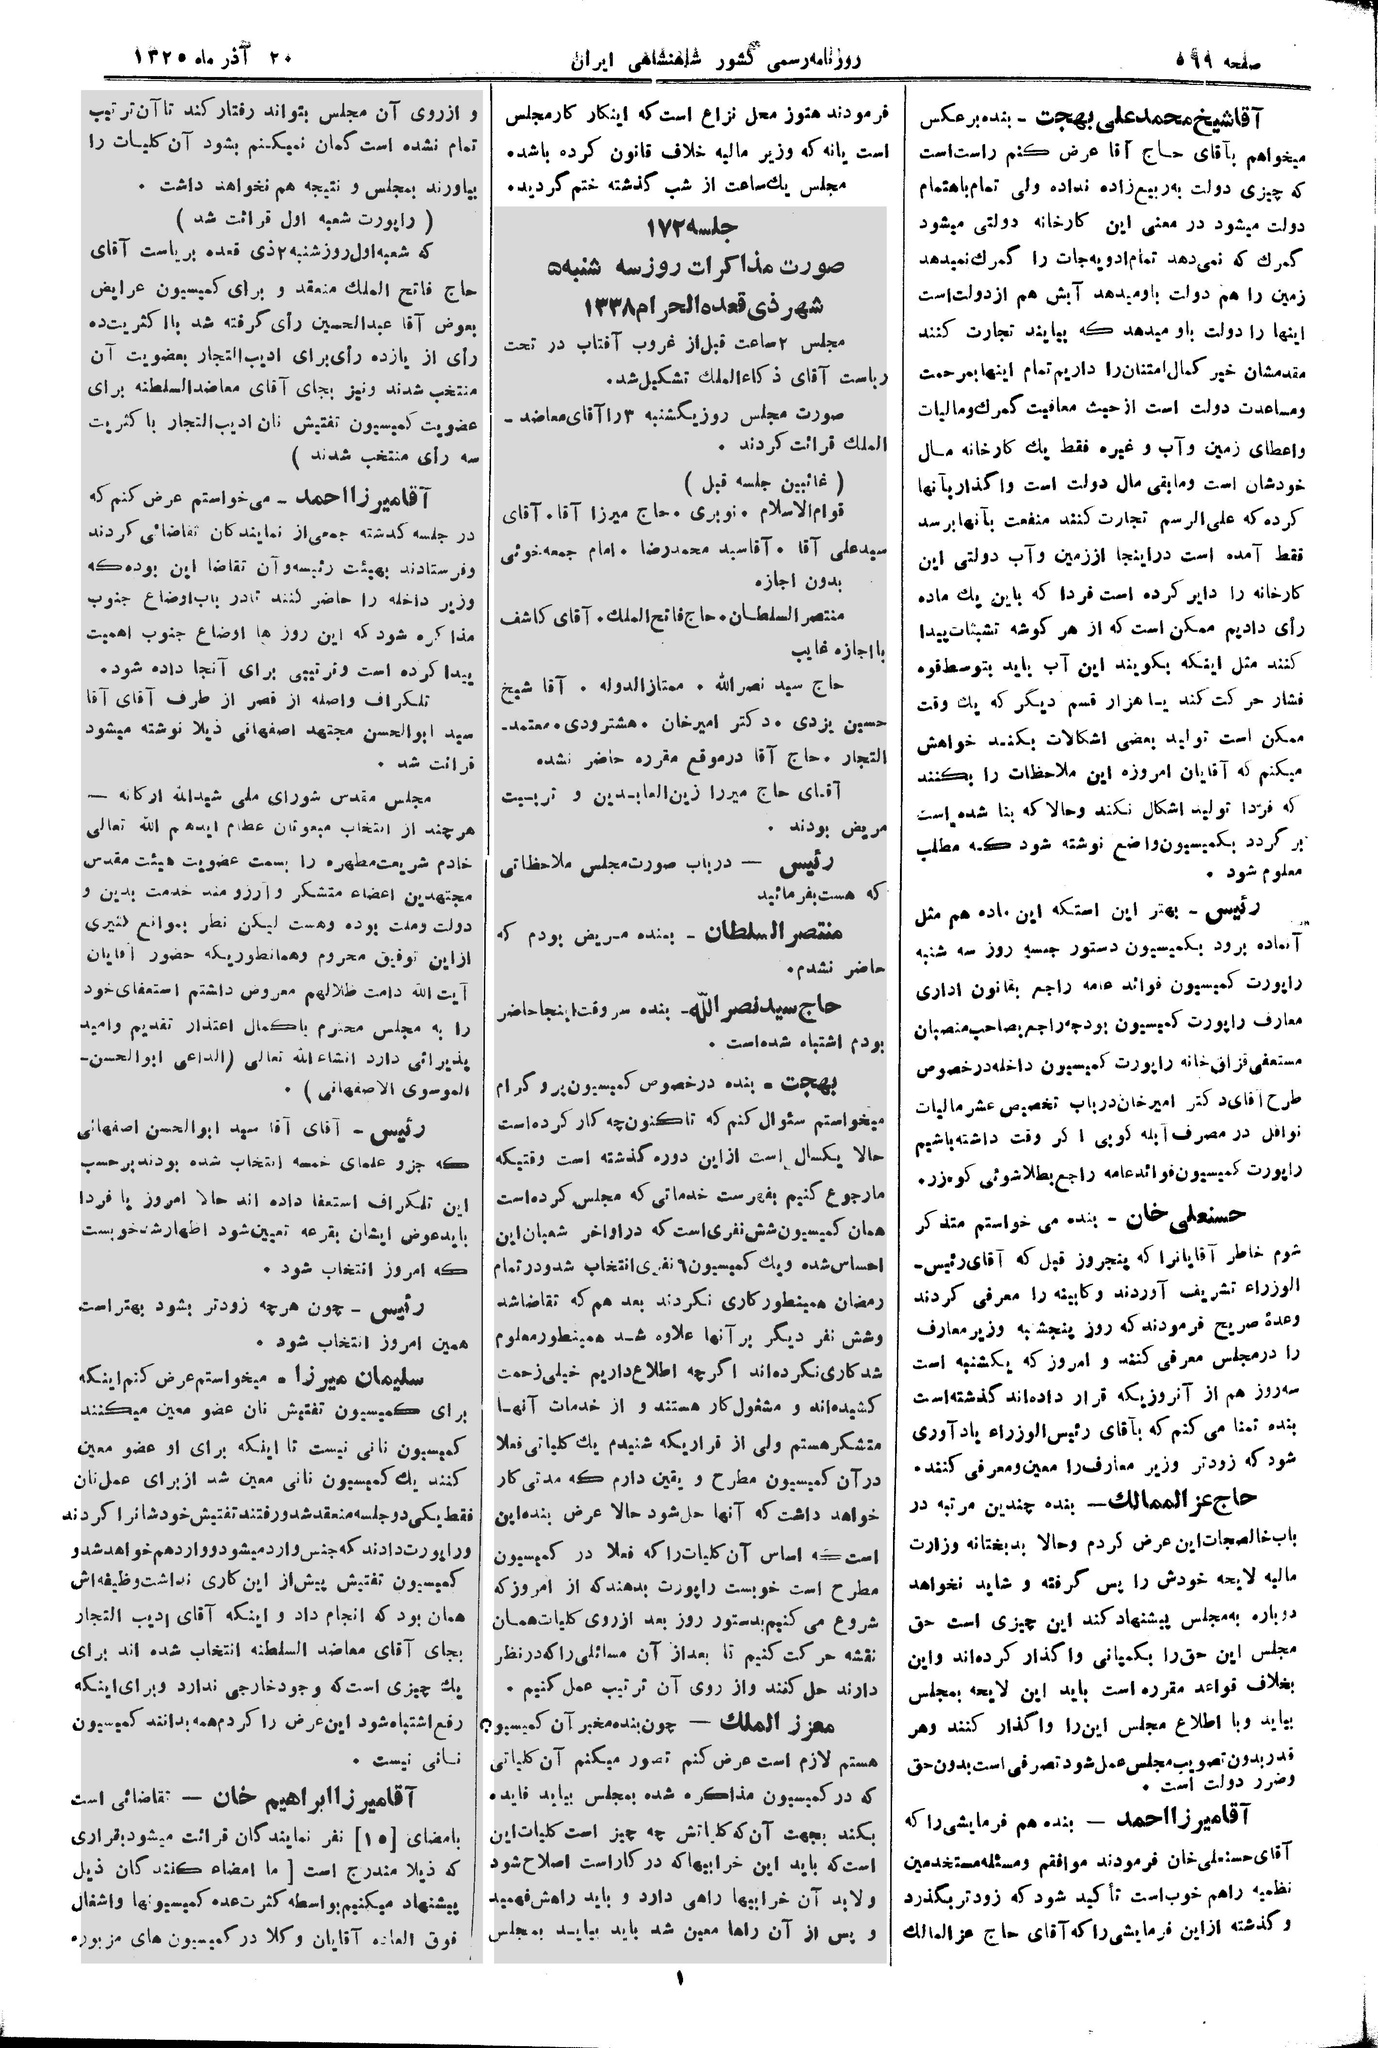 صفحه ۵۹۹
روزنامه رسمی کشور شاهنشاهی ایران
۲۰ آذر ماه ۱۳۲۵
آقا شیخ محمد علی بهجت - بنده برعکس
میخواهم بآقای حاج آقا عرض کنم راست است
که چیزی دولت به ربیع زاده نداده ولی تمام باهتمام
دولت میشود در معنی این کارخانه دولتی میشود
گمرک که نمی‌دهد تمام ادویه‌جات را گمرک نمیدهد
زمین را هم دولت باو میدهد آبش هم از دولت است
اینها را دولت باو میدهد که بیایند تجارت کنند
مقدمشان خیر کمال امتنان را داریم تمام اینها بمرحمت
ومساعدت دولت است از حیث معافیت گمرک و مالیات
واعطای زمین و آب و غیره فقط یک کارخانه مال
خودشان است ومابقی مال دولت است واگذار بآنها
کرده که علی الرسم تجارت کنند منفعت بآنها برسد
فقط آمده است در اینجا از زمین وآب دولتی این
کارخانه را دایر کرده است فردا که باین یک ماده
رأی دادیم ممکن است که از هر گوشه تشبثات پیدا
کنند مثل اینکه بگویند این آب باید بتوسط قوه
فشار حرکت کند یا هزار قسم دیگر که یک وقت
ممکن است تولید بعضی اشکالات بکند خواهش
میکنم که آقایان امروزه این ملاحظات را بکنند
که فردا تولید اشکال نکند وحالا که بنا شده است
بر گردد بکمیسیون واضع نوشته شود که مطلب
معلوم شود .
رئیس - بهتر این استکه این ماده هم مثل
آنماده برود بکمیسیون دستور جلسه روز سه شنبه
راپورت کمیسیون فوائد عامه راجع بقانون اداری
معارف راپورت کمیسیون بودجه راجع بصاحب منصبان
مستعفی قزاق خانه راپورت کمیسیون داخله در خصوص
طرح آقای دکتر امیرخان درباب تخصیص عشر مالیات
نوافل در مصرف آبله کوبی اگر وقت داشته باشیم
راپورت کمیسیون فوائد عامه راجع بطلاشوئی
حسنعلی خان - بنده می خواستم متذکر
شوم خاطر آقایانرا که پنجروز قبل که آقای رئیس-
الوزراء تشریف آوردند وکابینه را معرفی کردند
وعدهٔ صریح فرمودند که روز پنجشنبه وزیر معارف
را در مجلس معرفی کنند و امروز که یکشنبه است
سه روز هم از آنروزیکه قرار داده‌اند گذشته است
بنده تمنا می کنم که بآقای رئیس الوزراء یادآوری
شود که زودتر وزیر معارف را معین ومعرفی کنند.
حاج عز الممالک - بنده چندین مرتبه در
باب خالصجات این عرض کردم وحالا بدبختانه وزارت
مالیه لایحه خودش را پس گرفته و شاید نخواهد
دوباره به مجلس پیشنهاد کند این چیزی است حق
مجلس این حق را بکمپانی واگذار کرده‌اند واین
بخلاف قواعد مقرره است باید این لایحه بمجلس
بیاید وبا اطلاع مجلس این را واگذار کنند وهر
قدر بدون تصویب مجلس عمل شود تصرفی است بدون حق
وضرر دولت است .
آقا میرزا احمد - بنده هم فرمایشی را که
آقای حسنعلی خان فرمودند موافقم ومسئله مستخدمین
نظمیه راهم خوب است تأکید شود که زودتر بگذرد
و گذشته از این فرمایشی را که آقای حاج عز الممالک
فرمودند هنوز محل نزاع است که اینکار کار مجلس
است یا نه که وزیر مالیه خلاف قانون کرده باشد.
مجلس یک ساعت از شب گذشته ختم گردید.
جلسه ۱۷۲
صورت مذاکرات روز سه شنبه ۵
شهر ذی قعده الحرام ۱۳۳۸
مجلس ۲ ساعت قبل از غروب آفتاب در تحت
ریاست آقای ذکاء الملک تشکیل شد.
صورت مجلس روز یکشنبه ۳ را آقای معاضد -
الملک قرائت کردند .
( غائبین جلسه قبل )
قوام الاسلام . نوبری . حاج میرزا آقا . آقای
سید علی آقا . آقا سید محمد رضا . امام جمعه خوئی
بدون اجازه
منتصر السلطان . حاج فاتح الملک . آقای کاشف
با اجازه غایب
حاج سید نصر الله . ممتاز الدوله . آقا شیخ
حسین یزدی . دکتر امیر خان . هشترودی . معتمد -
التجار . حاج آقا در موقع مقرره حاضر نشده
آقای حاج میرزا زین العابدین و تربیت
مریض بودند .
رئیس — درباب صورت مجلس ملاحظاتی
که هست بفرمائید
منتصر السلطان - بنده مریض بودم که
حاضر نشدم .
حاج سید نصر الله - بنده سر وقت اینجا حاضر
بودم اشتباه شده است .
بهجت - بنده در خصوص کمیسیون پروگرام
میخواستم سئوال کنم که تا کنون چه کار کرده است
حالا یکسال است از این دوره گذشته است وقتیکه
ما رجوع کنیم بفهرست خدماتی که مجلس کرده است
همان کمیسیون شش نفری است که در اواخر شعبان این
احساس شده و یک کمیسیون ۶ نفری انتخاب شد ودر تمام
رمضان همینطور کاری نکردند بعد هم که تقاضا شد
وشش نفر دیگر بر آنها علاوه شد همینطور معلوم
شد کاری نکرده‌اند اگرچه اطلاع داریم خیلی زحمت
کشیده‌اند و مشغول کار هستند و از خدمات آنها
متشکر هستم ولی از قراریکه شنیدم یک کلیاتی فعلا
در آن کمیسیون مطرح و یقین دارم که مدتی کار
خواهد داشت که آنها حل شود حالا عرض بنده این
است که اساس آن کلیات را که فعلا در کمیسیون
مطرح است خوبست راپورت بدهند که از امروز که
شروع می کنیم بدستور روز بعد از روی کلیات همان
نقشه حرکت کنیم تا بعد از آن مسائلی را که در نظر
دارند حل کنند واز روی آن ترتیب عمل کنیم .
معزز الملک — چون بنده مخبر آن کمیسیون
هستم لازم است عرض کنم تصور میکنم آن کلیاتی
که در کمیسیون مذاکره شده بمجلس بیاید فایده
بکند بجهت آن که کلیاتش چه چیز است کلیات این
است که باید این خرابیها که در کار است اصلاح شود
ولابد آن خرابیها راهی دارد و باید راهش فهمید
و پس از آن راهها معین شد باید بیاید بمجلس
و از روی آن مجلس بتواند رفتار کند تا آن ترتیب
تمام نشده است گمان نمیکنم بشود آن کلیات را
بیاورند بمجلس و نتیجه هم نخواهد داشت .
( راپورت شعبه اول قرائت شد )
که شعبه اول روز شنبه ۲ ذی قعده بریاست آقای
حاج فاتح الملک منعقد و برای کمیسیون عرایض
بعوض آقا عبدالحسین رأی گرفته شد با اکثریت ده
رأی از یازده رأی برای ادیب التجار بعضویت آن
منتخب شدند ونیز بجای آقای معاضد السلطنه برای
عضویت کمیسیون تفتیش نان ادیب التجار باکثریت
سه رأی منتخب شدند )
آقا میرزا احمد - می‌خواستم عرض کنم که
در جلسه گذشته جمعی از نمایندگان تقاضائی کردند
وفرستادند بهیئت رئیسه و آن تقاضا این بوده که
وزیر داخله را حاضر کنند تا در باب اوضاع جنوب
مذاکره شود که این روز ها اوضاع جنوب اهمیت
پیدا کرده است وترتیبی برای آنجا داده شود.
تلگراف واصله از قصر از طرف آقای آقا
سید ابوالحسن مجتهد اصفهانی ذیلا نوشته میشود
قرائت شد .
مجلس مقدس شورای ملی شیدالله ارکانه —
هرچند از انتخاب مبعوثان عظام ایدهم الله تعالی
خادم شریعت مطهره را بسمت عضویت هیئت مقدس
مجتهدین اعضاء متشکر و آرزومند خدمت بدین و
دولت وملت بوده وهست لیکن نظر بموانع کثیری
از این توفیق محروم وهمانطوریکه حضور آقایان
آیت الله دامت ظلالهم معروض داشتم استعفای خود
را به مجلس محترم با کمال اعتذار تقدیم وامید
پذیرائی دارد انشاء الله تعالی (الداعی ابوالحسن-
الموسوی الاصفهانی) .
رئیس - آقای آقا سید ابوالحسن اصفهانی
که جزو علمای خمسه انتخاب شده بودند برحسب
این تلگراف استعفا داده اند حالا امروز یا فردا
باید عوض ایشان بقرعه تعیین شود اظهار شد خوبست
که امروز انتخاب شود .
رئیس - چون هرچه زودتر بشود بهتر است
همین امروز انتخاب شود .
سلیمان میرزا - میخواستم عرض کنم اینکه
برای کمیسیون تفتیش نان عضو معین میکنند
کمیسیون نانی نیست تا اینکه برای او عضو معین
کنند یک کمیسیون نانی معین شد از برای عمل نان
فقط یکی دو جلسه منعقد شد و رفتند تفتیش خودشانرا کردند
وراپورت دادند که جنس وارد میشود و وارد هم خواهد شد و
کمیسیون تفتیش پیش از این کاری نداشت وظیفه‌اش
همان بود که انجام داد و اینکه آقای ادیب التجار
بجای آقای معاضد السلطنه انتخاب شده اند برای
یک چیزی است که وجود خارجی ندارد وبرای اینکه
رفع اشتباه شود این عرض را کردم همه بدانند کمیسیون
نانی نیست .
آقا میرزا ابراهیم خان — تقاضائی است
بامضای [۱۵] نفر نمایندگان قرائت میشود بقراری
که ذیلا مندرج است [ ما امضاء کنندگان ذیل
پیشنهاد میکنیم بواسطه کثرت عده کمیسیونها واشغال
فوق العاده آقایان وکلا در کمیسیون های مزبوره
۱